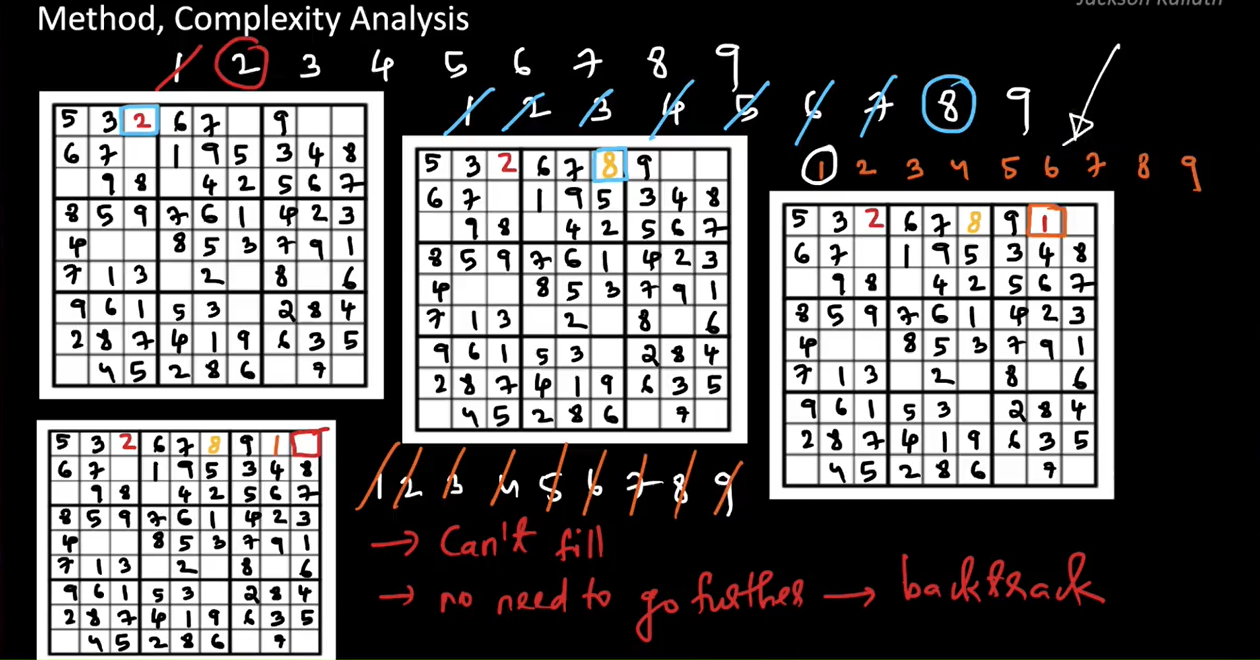 Jackson Kallath
Method, Complexity Analysis
1 2 3 4 5 6 7 8 9
1 2 3 4 5 6 7 8 9
1 2 3 4 5 6 7 8 9
5 3 2 6 7 9
6 7 1 9 5 3 4 8
9 8 4 2 5 6 7
8 5 9 7 6 1 4 2 3
4 8 5 3 7 9 1
7 1 3 2 8 6
9 6 1 5 3 2 8 4
2 8 7 4 1 9 6 3 5
4 5 2 8 6 7
5 3 2 6 7 8 9
6 7 1 9 5 3 4 8
9 8 4 2 5 6 7
8 5 9 7 6 1 4 2 3
4 8 5 3 7 9 1
7 1 3 2 8 6
9 6 1 5 3 2 8 4
2 8 7 4 1 9 6 3 5
4 5 2 8 6 7
5 3 2 6 7 8 9 1
6 7 1 9 5 3 4 8
9 8 4 2 5 6 7
8 5 9 7 6 1 4 2 3
4 8 5 3 7 9 1
7 1 3 2 8 6
9 6 1 5 3 2 8 4
2 8 7 4 1 9 6 3 5
4 5 2 8 6 7
5 3 2 6 7 8 9 1
6 7 1 9 5 3 4 8
9 8 4 2 5 6 7
8 5 9 7 6 1 4 2 3
4 8 5 3 7 9 1
7 1 3 2 8 6
9 6 1 5 3 2 8 4
2 8 7 4 1 9 6 3 5
4 5 2 8 6 7
1 2 3 4 5 6 7 8 9
→ Can't fill
→ no need to go further → backtrack